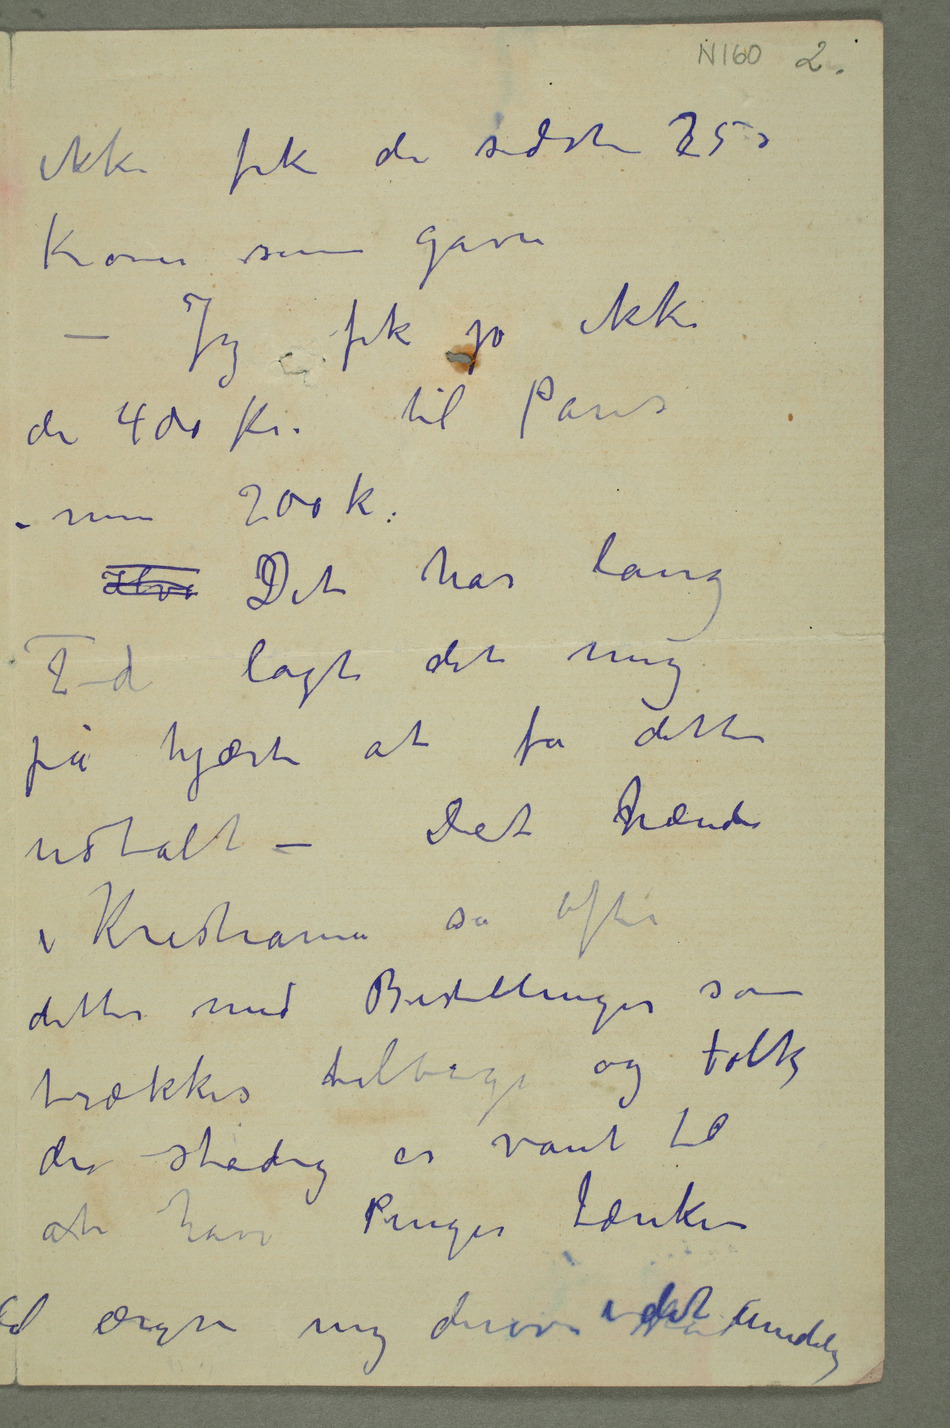 N160 2.
ikke fik de sidste 250
Kroner som gave
– Jeg fik jo ikke
de 400 Kr. til Paris
– men 200 k.
Det har lang
Tid lagt det mig
på hjærte at få dette
udtalt – Det hænder
i Kristiania så ofte
dette med Bestillinger som
trækkes tilbage og folk
der stadig er vant til
at have Penger tænker
ei ærgre mig derover i det uendelig